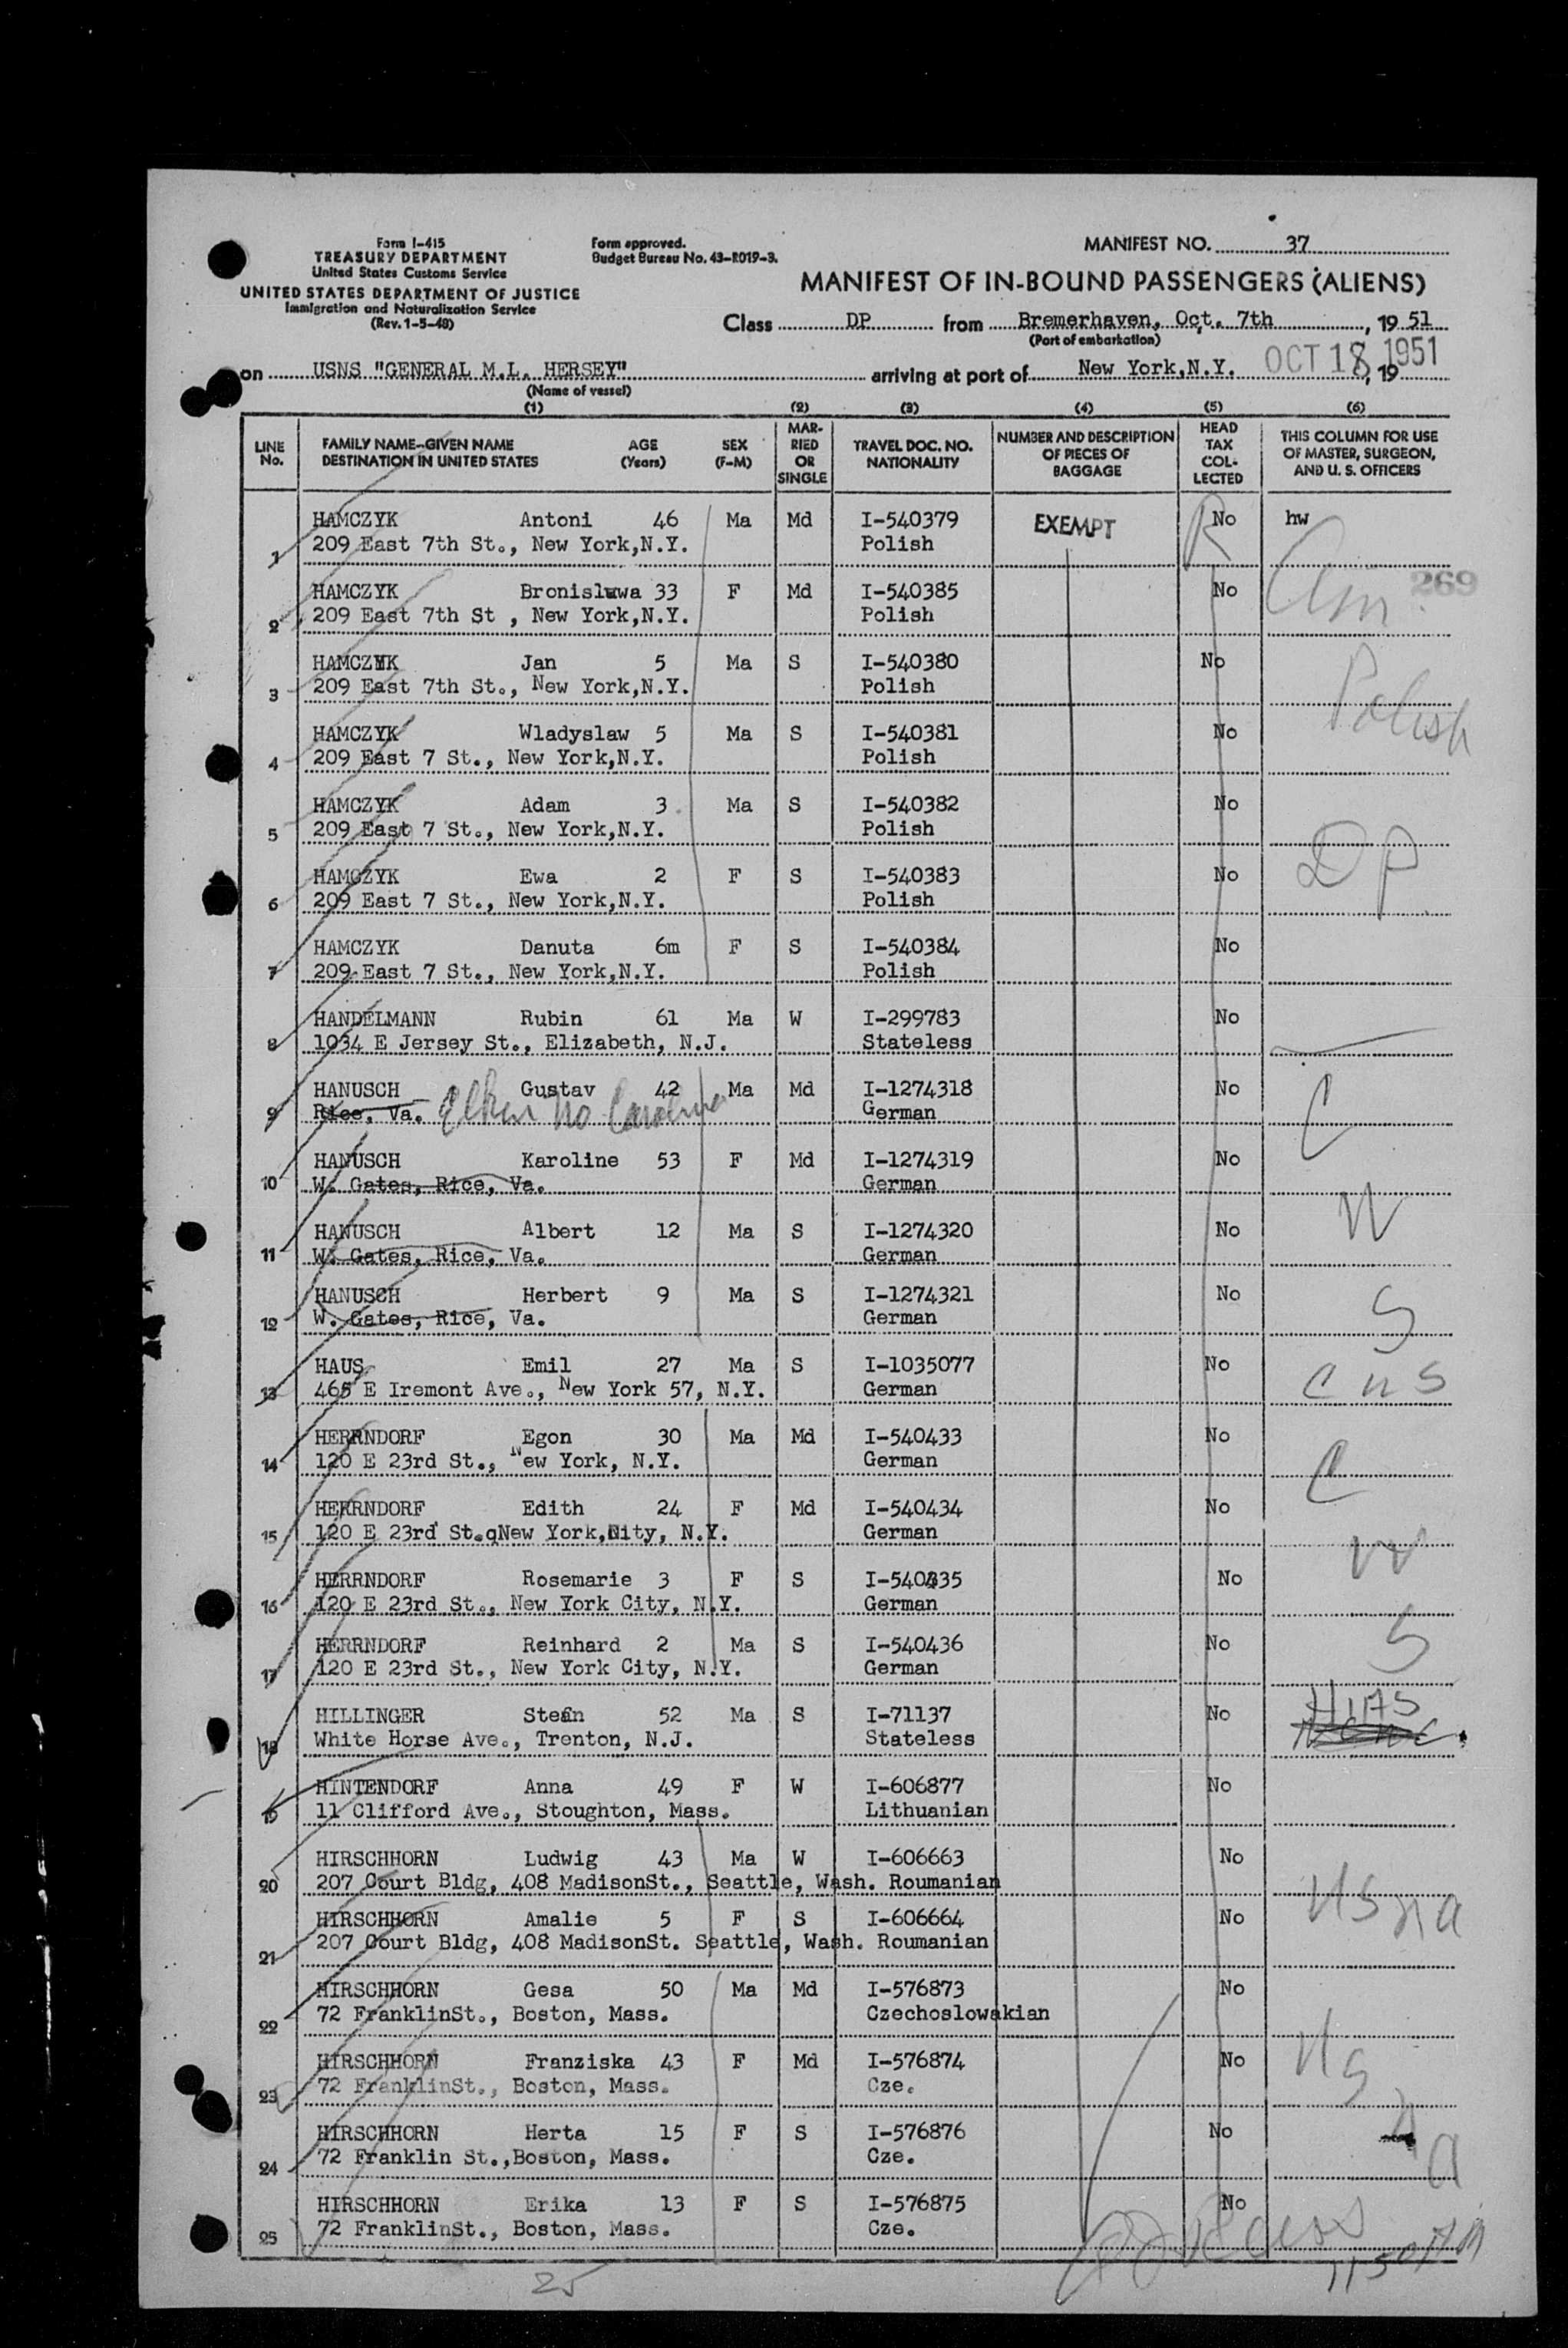 Form I-415
TREASURY DEPARTMENT
United States Customs Service
UNITED STATES DEPARTMENT OF JUSTICE
Immigration and Naturalization Service
(Rev. 1-5-48)
Form approved.
Budget Bureau No. 43-R019-3.
MANIFEST NO. 37
MANIFEST OF IN-BOUND PASSENGERS (ALIENS)
Class DP from Bremerhaven, Oct. 7th, 19 51
(Port of embarkation)
on USNS "GENERAL M.L. HERSEY" arriving at port of New York,N.Y. OCT 18 1951, 19
(Name of vessel)
(1) (2) (3) (4) (5) (6)
LINE No. FAMILY NAME-GIVEN NAME DESTINATION IN UNITED STATES AGE (Years) SEX (F-M) MARRIED OR SINGLE TRAVEL DOC. NO. NATIONALITY NUMBER AND DESCRIPTION OF PIECES OF BAGGAGE HEAD TAX COLLECTED THIS COLUMN FOR USE OF MASTER, SURGEON, AND U. S. OFFICERS
HAMCZYK Antoni 46 Ma Md I-540379 EXEMPT No hw
1 209 East 7th St., New York,N.Y. Polish
HAMCZYK Bronislawa 33 F Md I-540385 No 269
2 209 East 7th St , New York,N.Y. Polish
HAMCZYK Jan 5 Ma S I-540380 No
3 209 East 7th St., New York,N.Y. Polish Polish
HAMCZYK Wladyslaw 5 Ma S I-540381 No
4 209 East 7 St., New York,N.Y. Polish
HAMCZYK Adam 3 Ma S I-540382 No
5 209 East 7 St., New York,N.Y. Polish
HAMCZYK Ewa 2 F S I-540383 No DP
6 209 East 7 St., New York,N.Y. Polish
HAMCZYK Danuta 6m F S I-540384 No
7 209 East 7 St., New York,N.Y. Polish
HANDELMANN Rubin 61 Ma W I-299783 No
8 1034 E Jersey St., Elizabeth, N.J. Stateless
HANUSCH Gustav 42 Ma Md I-1274318 No C
9 Rice, Va. Elkin No Carolina German
HANUSCH Karoline 53 F Md I-1274319 No
10 W. Gates, Rice, Va. German W
HANUSCH Albert 12 Ma S I-1274320 No
11 W. Gates, Rice, Va. German
HANUSCH Herbert 9 Ma S I-1274321 No S
12 W. Gates, Rice, Va. German
HAUS Emil 27 Ma S I-1035077 No
13 465 E Iremont Ave., New York 57, N.Y. German C W S
HERRNDORF Egon 30 Ma Md I-540433 No
14 120 E 23rd St., New York, N.Y. German C
HERRNDORF Edith 24 F Md I-540434 No
15 120 E 23rd St.qNew York,City, N.Y. German W
HERRNDORF Rosemarie 3 F S I-540435 No
16 120 E 23rd St., New York City, N.Y. German
HERRNDORF Reinhard 2 Ma S I-540436 No S
17 120 E 23rd St., New York City, N.Y. German
HILLINGER Stefan 52 Ma S I-71137 No HIAS
18 White Horse Ave., Trenton, N.J. Stateless
HINTENDORF Anna 49 F W I-606877 No
19 11 Clifford Ave., Stoughton, Mass. Lithuanian
HIRSCHHORN Ludwig 43 Ma W I-606663 No
20 207 Court Bldg, 408 MadisonSt., Seattle, Wash. Roumanian
HIRSCHHORN Amalie 5 F S I-606664 No USNA
21 207 Court Bldg, 408 MadisonSt. Seattle, Wash. Roumanian
HIRSCHHORN Gesa 50 Ma Md I-576873 No
22 72 FranklinSt., Boston, Mass. Czechoslowakian
HIRSCHHORN Franziska 43 F Md I-576874 No
23 72 FranklinSt., Boston, Mass. Cze.
HIRSCHHORN Herta 15 F S I-576876 No
24 72 Franklin St.,Boston, Mass. Cze.
HIRSCHHORN Erika 13 F S I-576875 No
25 72 FranklinSt., Boston, Mass. Cze.
1150AM
25